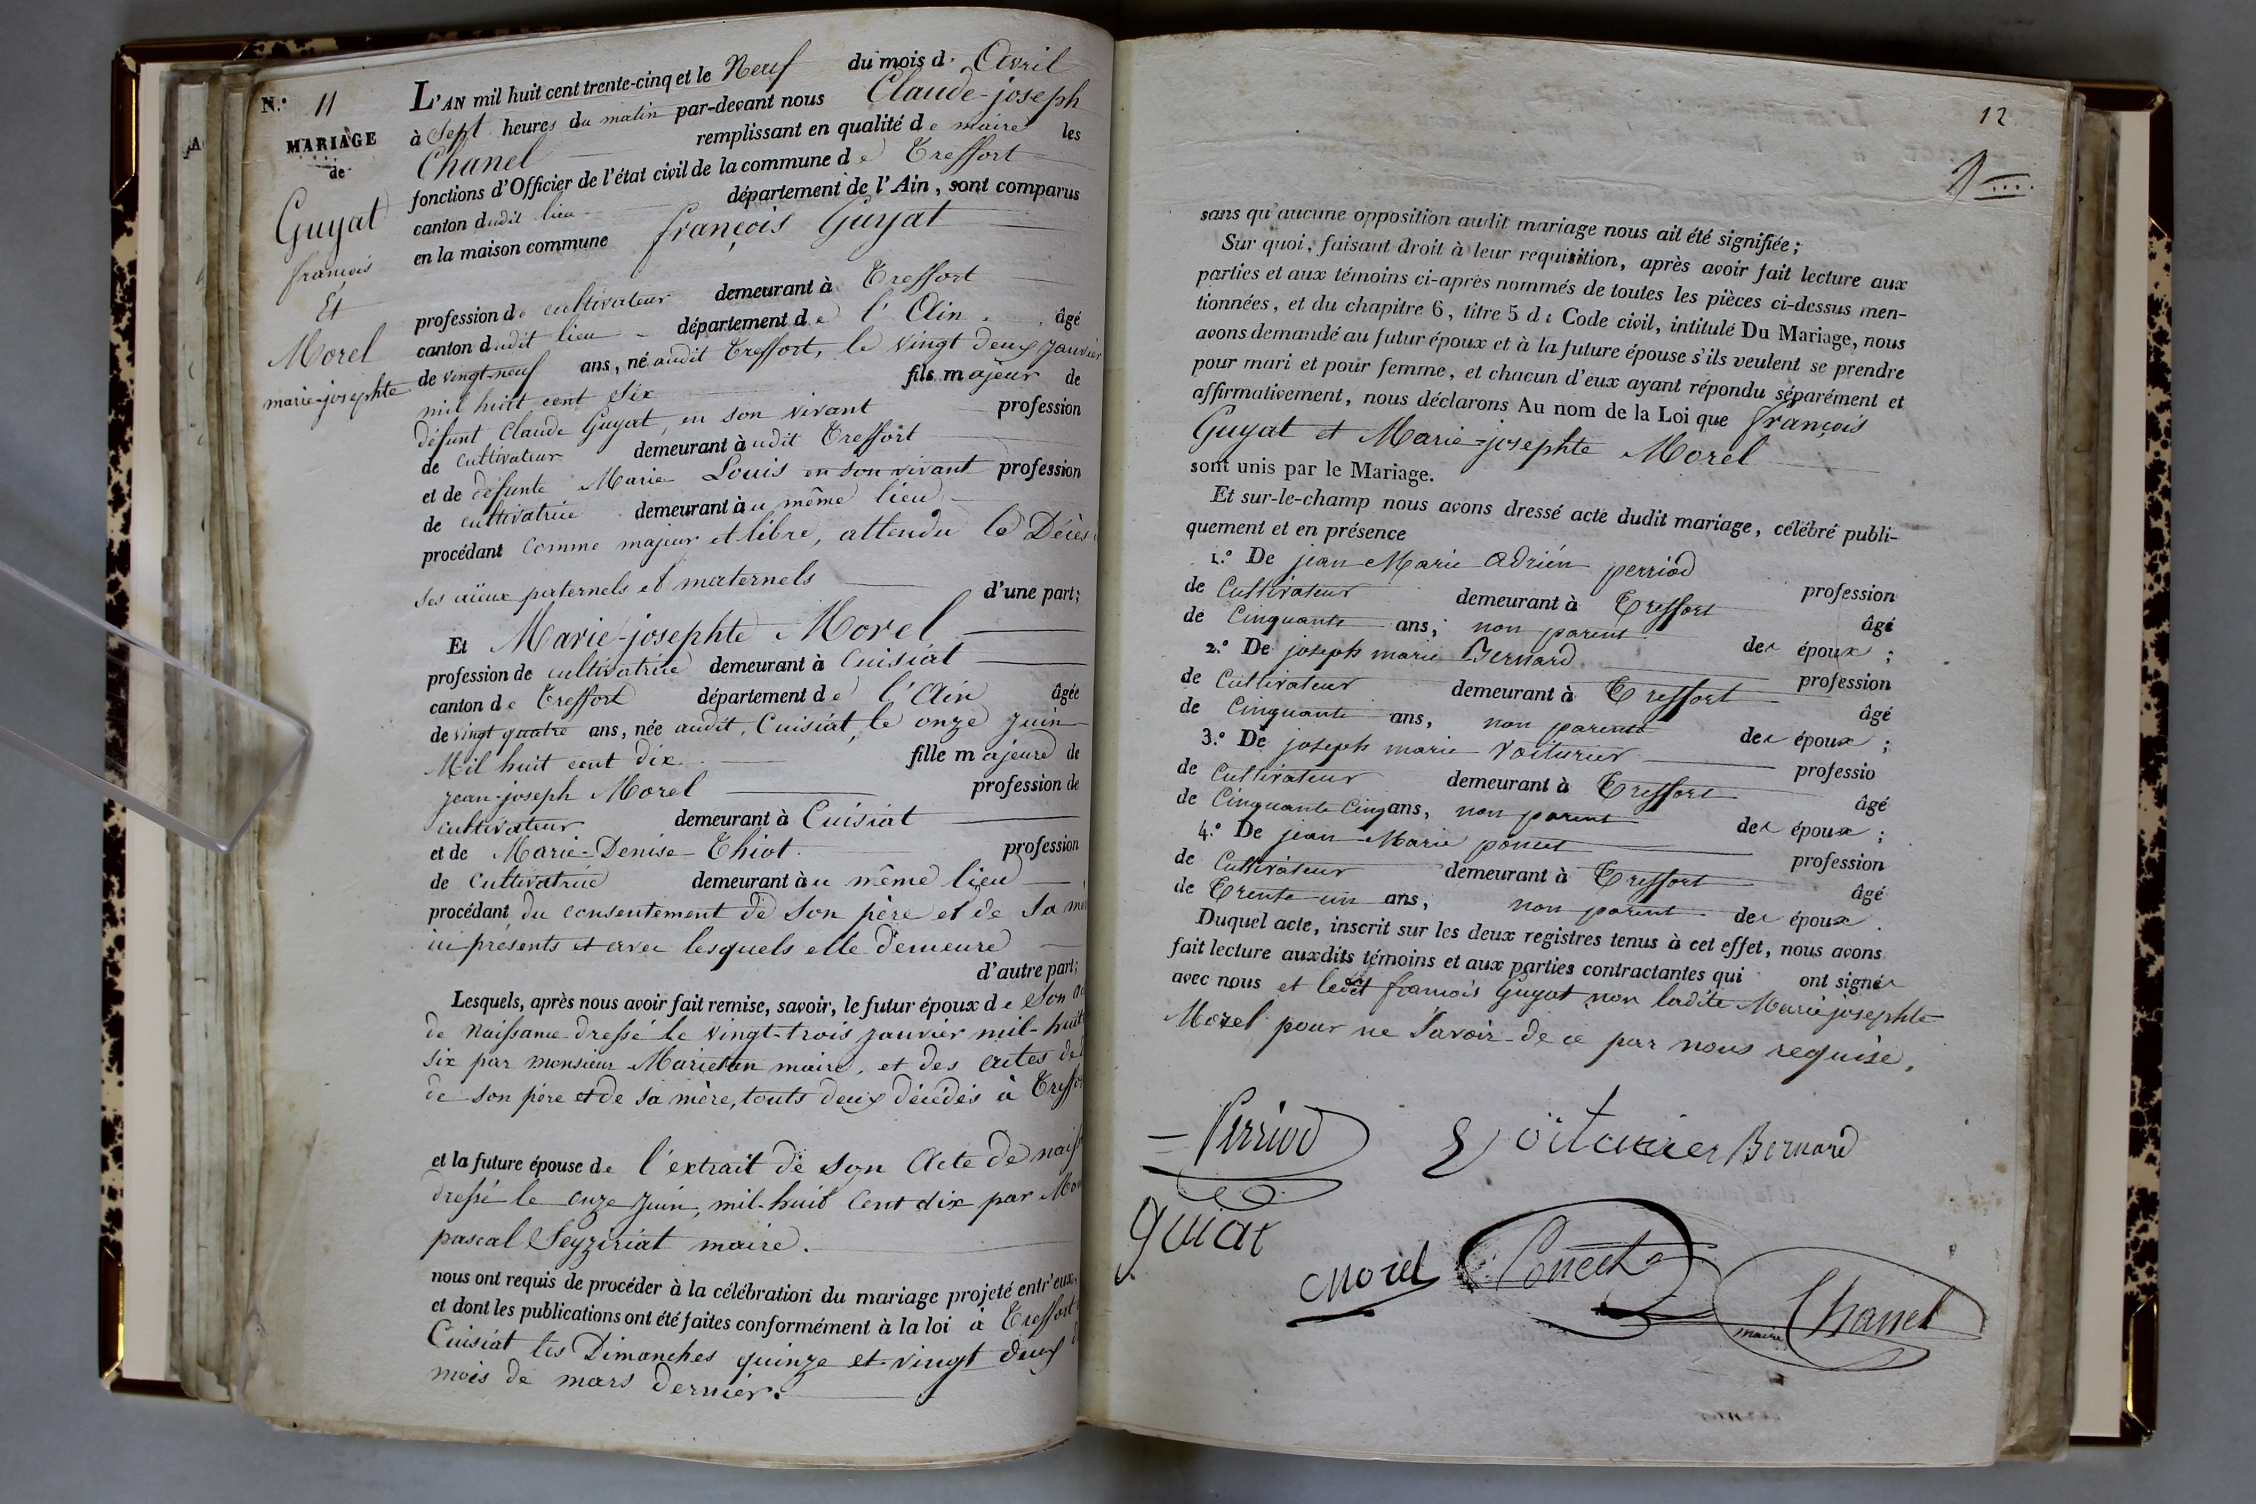 N.° 11
MARIAGE
de
Guyat
françois
Et
Morel
marie-josephte
L'AN mil huit cent trente-cinq et le Neuf du mois d' Avril
à Sept heures du matin par-devant nous Claude-joseph
Chanel remplissant en qualité de maire les
fonctions d'Officier de l'état civil de la commune de Treffort
canton dudit lieu département de l'Ain, sont comparus
en la maison commune françois Guyat
profession de cultivateur demeurant à Treffort
canton dudit lieu département de l'Ain âgé
de vingt-neuf ans, né audit Treffort, le vingt deux janvier
mil huit cent six fils majeur de
défunt Claude Guyat, en son vivant profession
de cultivateur demeurant audit Treffort
et de défunte Marie Louis en son vivant profession
de cultivatrice demeurant au même lieu
procédant comme majeur et libre, attendu le Décès
ses aïeux paternels et maternels d'une part;
Et Marie-josephte Morel
profession de cultivatrice demeurant à Cuisiat
canton de Treffort département de l'Ain âgée
de vingt quatre ans, née audit Cuisiat, le onze juin
Mil huit cent dix fille majeure de
jean-joseph Morel profession de
cultivateur demeurant à Cuisiat
et de Marie-Denise Thiot profession
de Cultivatrice demeurant au même lieu
procédant du consentement de son père et de sa
ici présents et avec lesquels elle demeure
d'autre part;
Lesquels, après nous avoir fait remise, savoir, le futur époux de son
de naissance dressé le vingt-trois janvier mil-huit
six par monsieur Marietan maire, et des actes de
de son père et de sa mère, touts deux décédés à
et la future épouse de l'extrait de son Acte de
dressé le onze juin, mil-huit cent dix par
pascal Seyziriat maire.
nous ont requis de procéder à la célébration du mariage projeté entr'eux,
et dont les publications ont été faites conformément à la loi à Treffort
Cuisiat les Dimanches quinze et vingt deux
mois de mars dernier.
12
sans qu'aucune opposition audit mariage nous ait été signifiée;
Sur quoi, faisant droit à leur requisition, après avoir fait lecture aux
parties et aux témoins ci-après nommés de toutes les pièces ci-dessus men-
tionnées, et du chapitre 6, titre 5 du Code civil, intitulé Du Mariage, nous
avons demandé au futur époux et à la future épouse s'ils veulent se prendre
pour mari et pour femme, et chacun d'eux ayant répondu séparément et
affirmativement, nous déclarons Au nom de la Loi que françois
Guyat et Marie-josephte Morel
sont unis par le Mariage.
Et sur-le-champ nous avons dressé acte dudit mariage, célébré publi-
quement et en présence
1.° De jean Marie adrien perriod profession
de Cultivateur demeurant à Treffort âgé
de Cinquante ans, non parent des époux;
2.° De joseph marie Bernard profession
de Cultivateur demeurant à Treffort âgé
de Cinquante ans, non parent des époux;
3.° De joseph marie Voiturier professio
de Cultivateur demeurant à Treffort âgé
de Cinquante Cinq ans, non parent des époux;
4.° De jean Marie poncet profession
de Cultivateur demeurant à Treffort âgé
de Trente un ans, non parent des époux.
Duquel acte, inscrit sur les deux registres tenus à cet effet, nous avons
fait lecture auxdits témoins et aux parties contractantes qui ont signé
avec nous et ledit francois Guyat non ladite Marie josephte
Morel pour ne Savoir de ce par nous requise.
Perriod Voiturier Bernard
guiat
Morel Poncet
maire Chanel